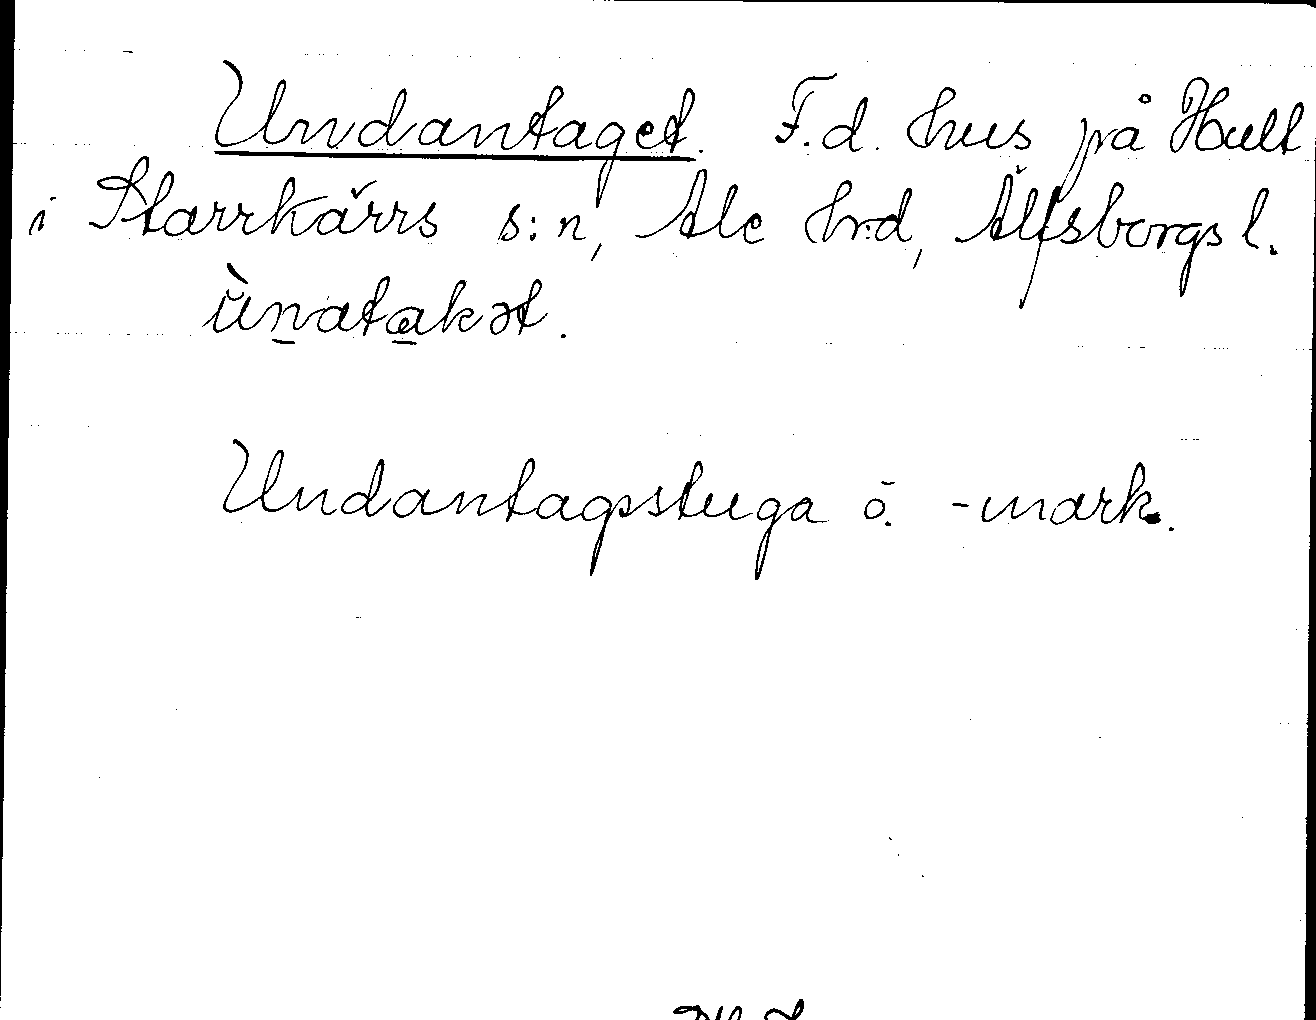 Undantaget. F.d. hus på Hult
i Starrkärrs s:n, Ale hrd, Älfsborgs l.
ùnatakət.
Undantagsstuga o. -mark.